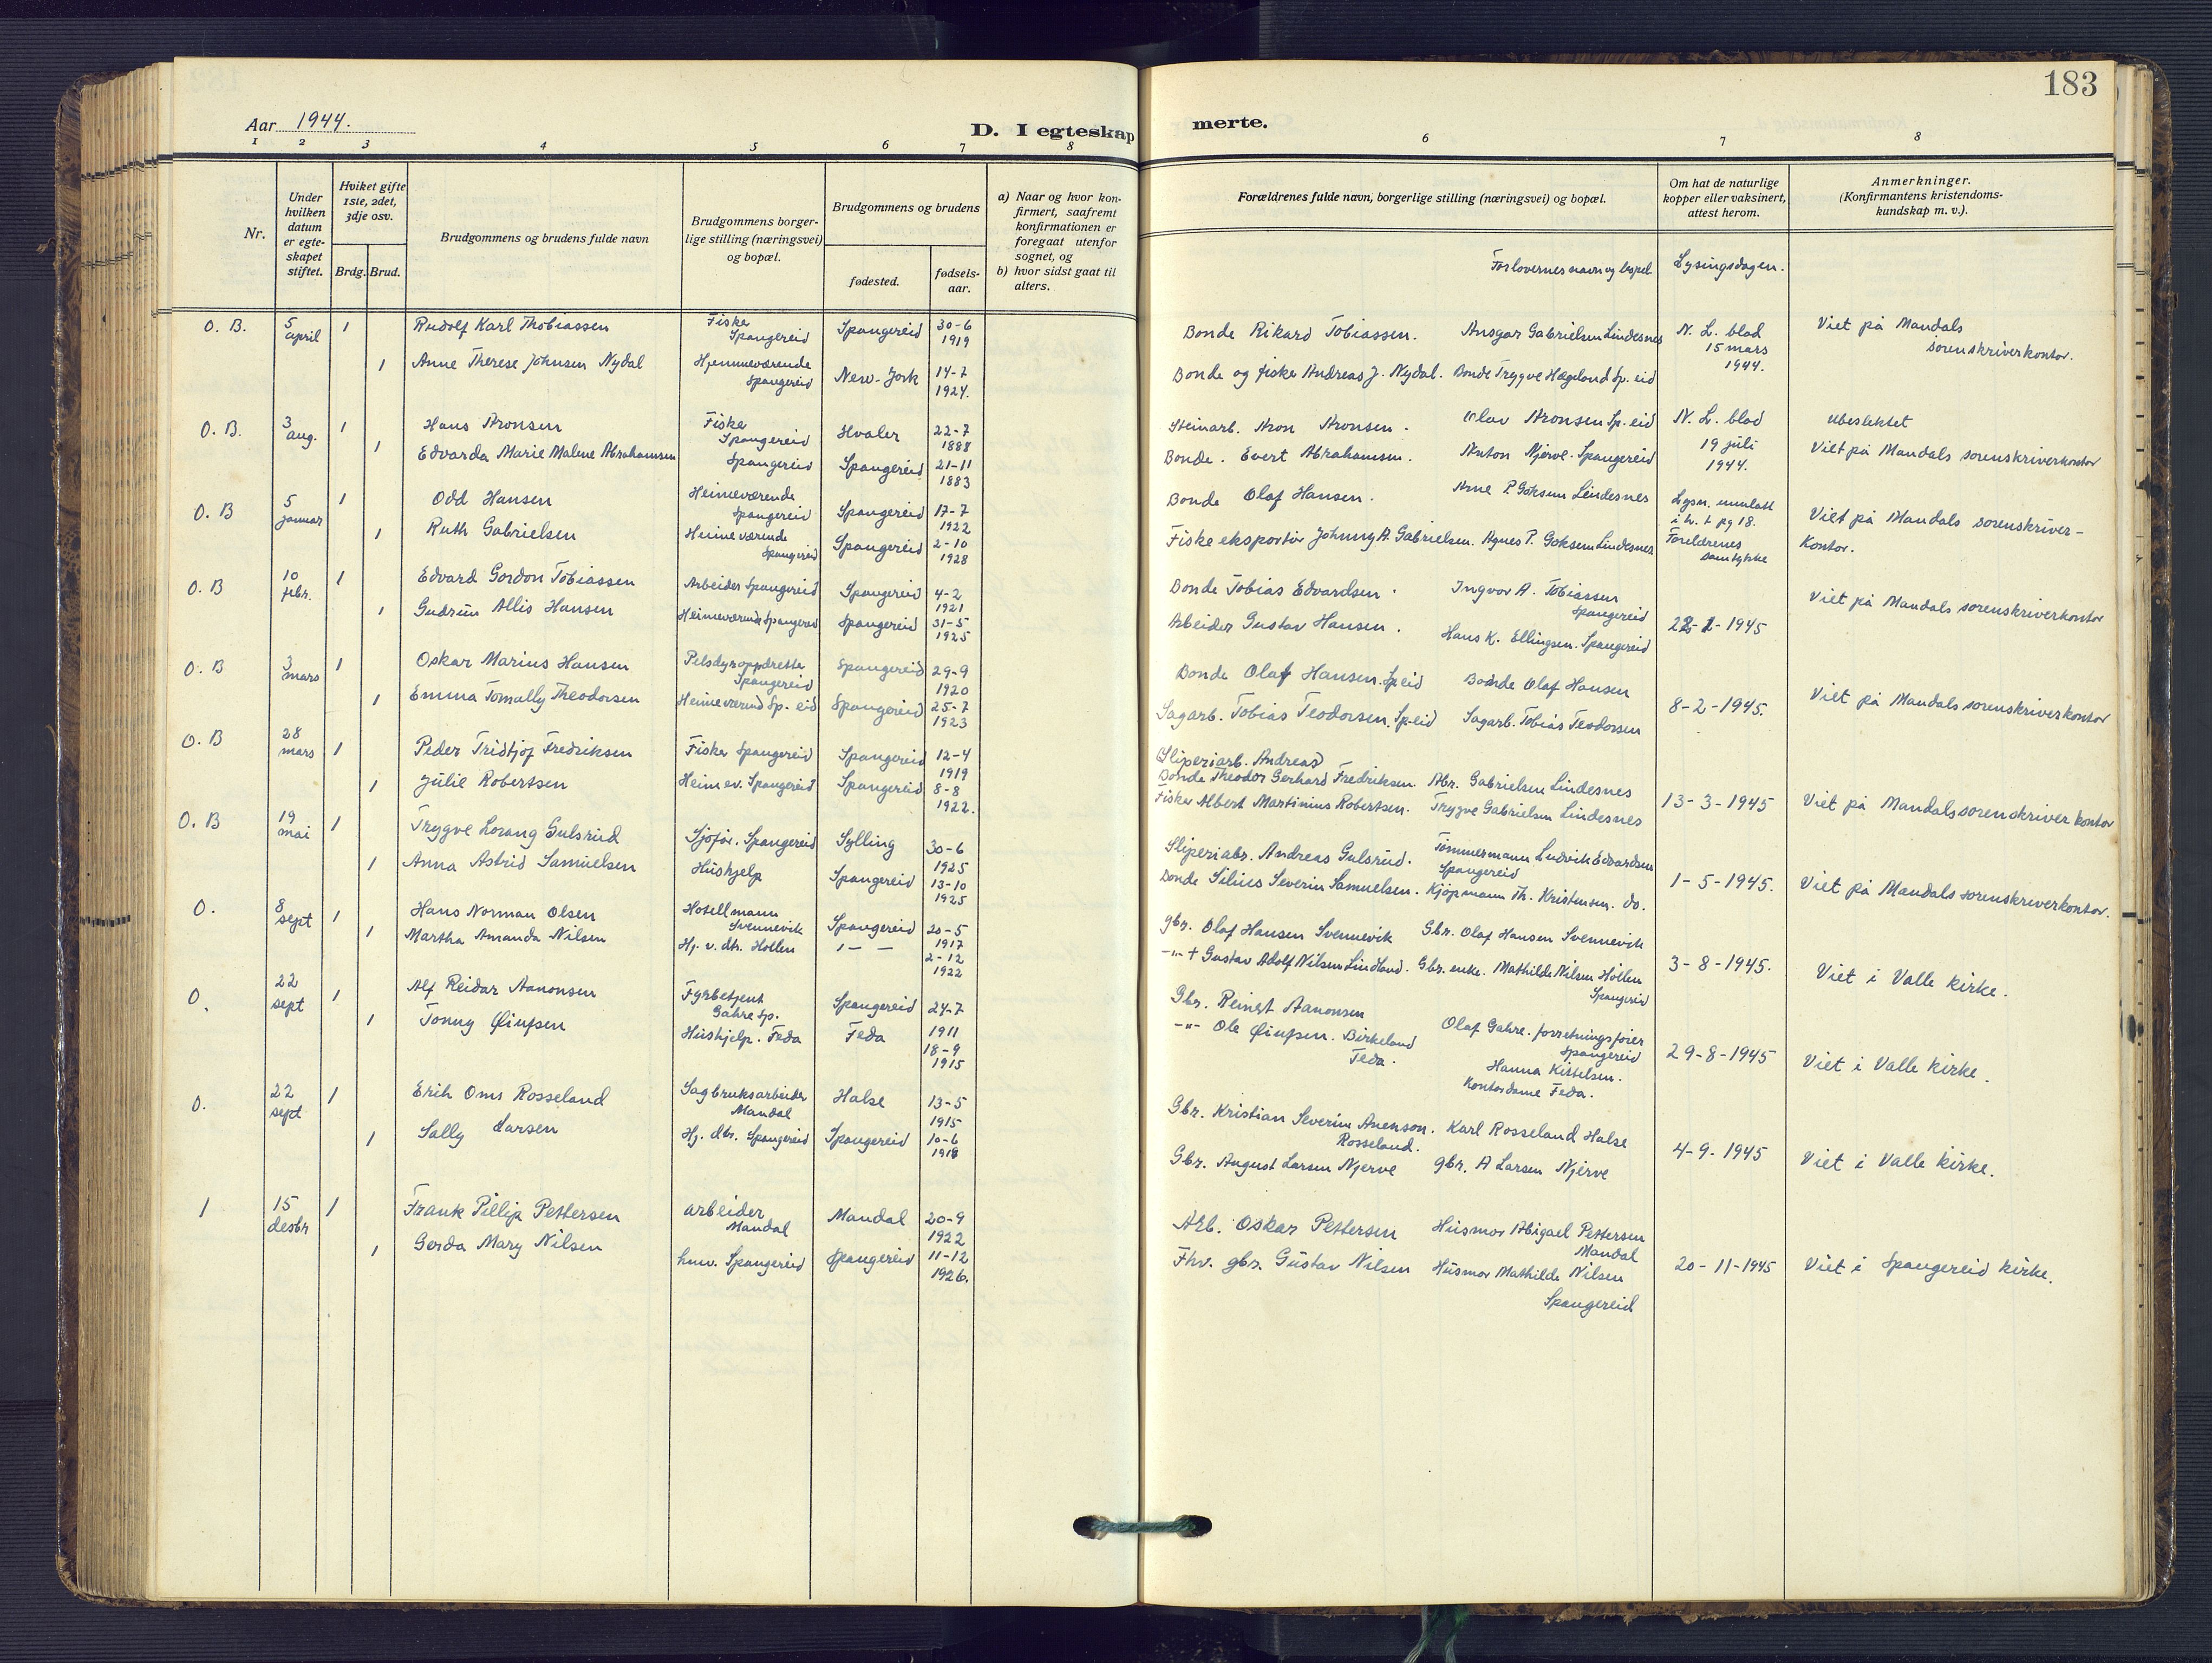 183
Aar 1944.
D. I egteskap
merte.
1 2 3 4 5 6 7 8
6 7 8
Nr.
Under hvilken datum er egte-skapet stiftet.
Hviket gifte 1ste, 2det, 3dje osv.
Brdg. Brud.
Brudgommens og brudens fulde navn
Brudgommens borger-lige stilling (næringsvei) og bopæl.
Brudgommens og brudens
fødested.
fødsels-aar.
a) Naar og hvor kon-firmert, saafremt konfirmationen er foregaat utenfor sognet, og
b) hvor sidst gaat til alters.
Forældrenes fulde navn, borgerlige stilling (næringsvei) og bopæl.
Om hat de naturlige kopper eller vaksinert, attest herom.
Anmerkninger.
(Konfirmantens kristendoms-kundskap m. v.).
Forlovernes navn og bopel
Lysingsdagen.
O. B. 5 april 1 Rudolf Karl Thobiassen Fisker Spangereid Spangereid 30-6 1919 Bonde Rikard Tobiassen. Ansgar Gabrielsen Lindesnes N. L. blad 15 mars 1944. Viet på Mandals sorenskriverkontor.
1 Anne Therese Johnsen Nydal Hjemmeværende Spangereid New-York 14-7 1924. Bonde og fisker Andreas J. Nydal. Bonde Trygve Hægeland Sp. eid
O. B. 3 aug. 1 Hans Aronsen Fisker Spangereid Hvaler 22-7 1888 Steinarb. Aron Aronsen. Olav Aronsen Sp. eid N. L. blad 19 juli 1944. Ubeslektet
1 Edvarda Marie Malene Abrahamsen Spangereid Spangereid 21-11 1883 Bonde. Evert Abrahamsen. Anton Njerve. Spangereid Viet på Mandals sorenskriverkontor
O. B 5 januar 1 Odd Hansen Heimeværende Spangereid Spangereid 17-7 1922 Bonde Olaf Hansen. Arne P. Goksem Lindesnes Lysn. unnlatt i h. t pg 18. Viet på Mandals sorenskriver-kontor.
1 Ruth Gabrielsen Heimeværende Spangereid Spangereid 2-10 1928 Fiske eksportør Johnny A. Gabrielsen. Agnes P. Goksem Lindesnes Foreldrenes samtykke
O. B 10 febr. 1 Edvard Gordon Tobiassen Arbeider Spangereid Spangereid 4-2 1921 Bonde Tobias Edvardsen. Ingvor A. Tobiassen Spangereid Viet på Mandals sorenskriverkontor
1 Gudrun Allis Hansen Heimeværende Spangereid Spangereid 31-5 1925 Arbeider Gustav Hansen. Hans K. Ellingsen. Spangereid -1945
O. B 3 mars 1 Oskar Marius Hansen Pelsdyroppdretter Spangereid Spangereid 29-9 1920 Bonde Olaf Hansen. Sp eid Bonde Olaf Hansen
1 Emma Tomally Theodorsen Heimeværend Sp. eid Spangereid 25-7 1923 Sagarb. Tobias Teodorsen. Sp-eid Sagarb. Tobias Teodorsen 8-2-1945. Viet på Mandals sorenskriverkontor
O. B 28 mars 1 Peder Tridtjof Fredriksen Fisker Spangereid Spangereid 12-4 1919 Sliperiarb. Andreas
Bonde Theodor Gerhard Fredriksen. Abr. Gabrielsen Lindesnes
1 Julie Robertsen Heimev. Spangereid Spangereid 8-8 1922. Fisker Albert Martinius Robertsen. Trygve Gabrielsen Lindesnes 13-3-1945 Viet på Mandals sorenskriver kontor
O. B 19 mai 1 Trygve Lorang Gulsrud Sjåfør. Spangereid Sylling 30-6 1925 Sliperiabr. Andreas Gulsrud. Tømmermann Ludvik Edvardsen Spangereid
1 Anna Astrid Samuelsen Hushjelp Spangereid 13-10 1925 Bonde Silius Severin Samuelsen. Kjøpmann Th. Kristensen. do. 1-5-1945. Viet på Mandals sorenskriverkontor.
O. 8 sept 1 Hans Norman Olsen Hotellmann Svennevik Spangereid 20-5 1917 gbr. Olaf Hansen Svennevik Gbr. Olaf Hansen Svennevik
1 Martha Amanda Nilsen Hj. v. dtr. Hollen 1 — — 2-12 1922 -"- + Gustav Adolf Nilsen Lindland. Gbr. enke. Mathilde Nilsen Høllen Spangereid 3-8-1945. Viet i Valle kirke.
O. 22 sept 1 Alf Reidar Aanonsen Fyrbetjent Gahre Sp. Spangereid 24-7 1911 Gbr. Reinert Aanonsen Olaf Gahre. forretningsfører Spangereid
1 Tonny Hushjelp. Feda Feda 18-9 1915 -"- Ole Birkeland Feda. Hanna Kittelsen. Kontordame Feda. 29-8-1945 Viet i Valle kirke.
O. 22 sept 1 Erik Oms Rosseland Sagbruksarbeider Mandal Halse 13-5 1915 Gbr. Kristian Severin Anenson. Rosseland. Karl Rosseland Halse
1 Sally Larsen Hj. dtr. Spangereid Spangereid 10-6 1918 Gbr. August Larsen Njerve gbr. A Larsen Njerve 4-9-1945 Viet i Valle kirke.
1 15 desbr 1 Frank Pillip Pettersen arbeider Mandal Mandal 20-9 1922 Arb. Oskar Pettersen Husmor Abigael Pettersen Mandal
1 Gerda Mary Nilsen hmv. Spangereid Spangereid 11-12 1926. Fhv. gbr. Gustav Nilsen Husmor Mathilde Nilsen Spangereid 20-11-1945 Viet i Spangereid kirke.